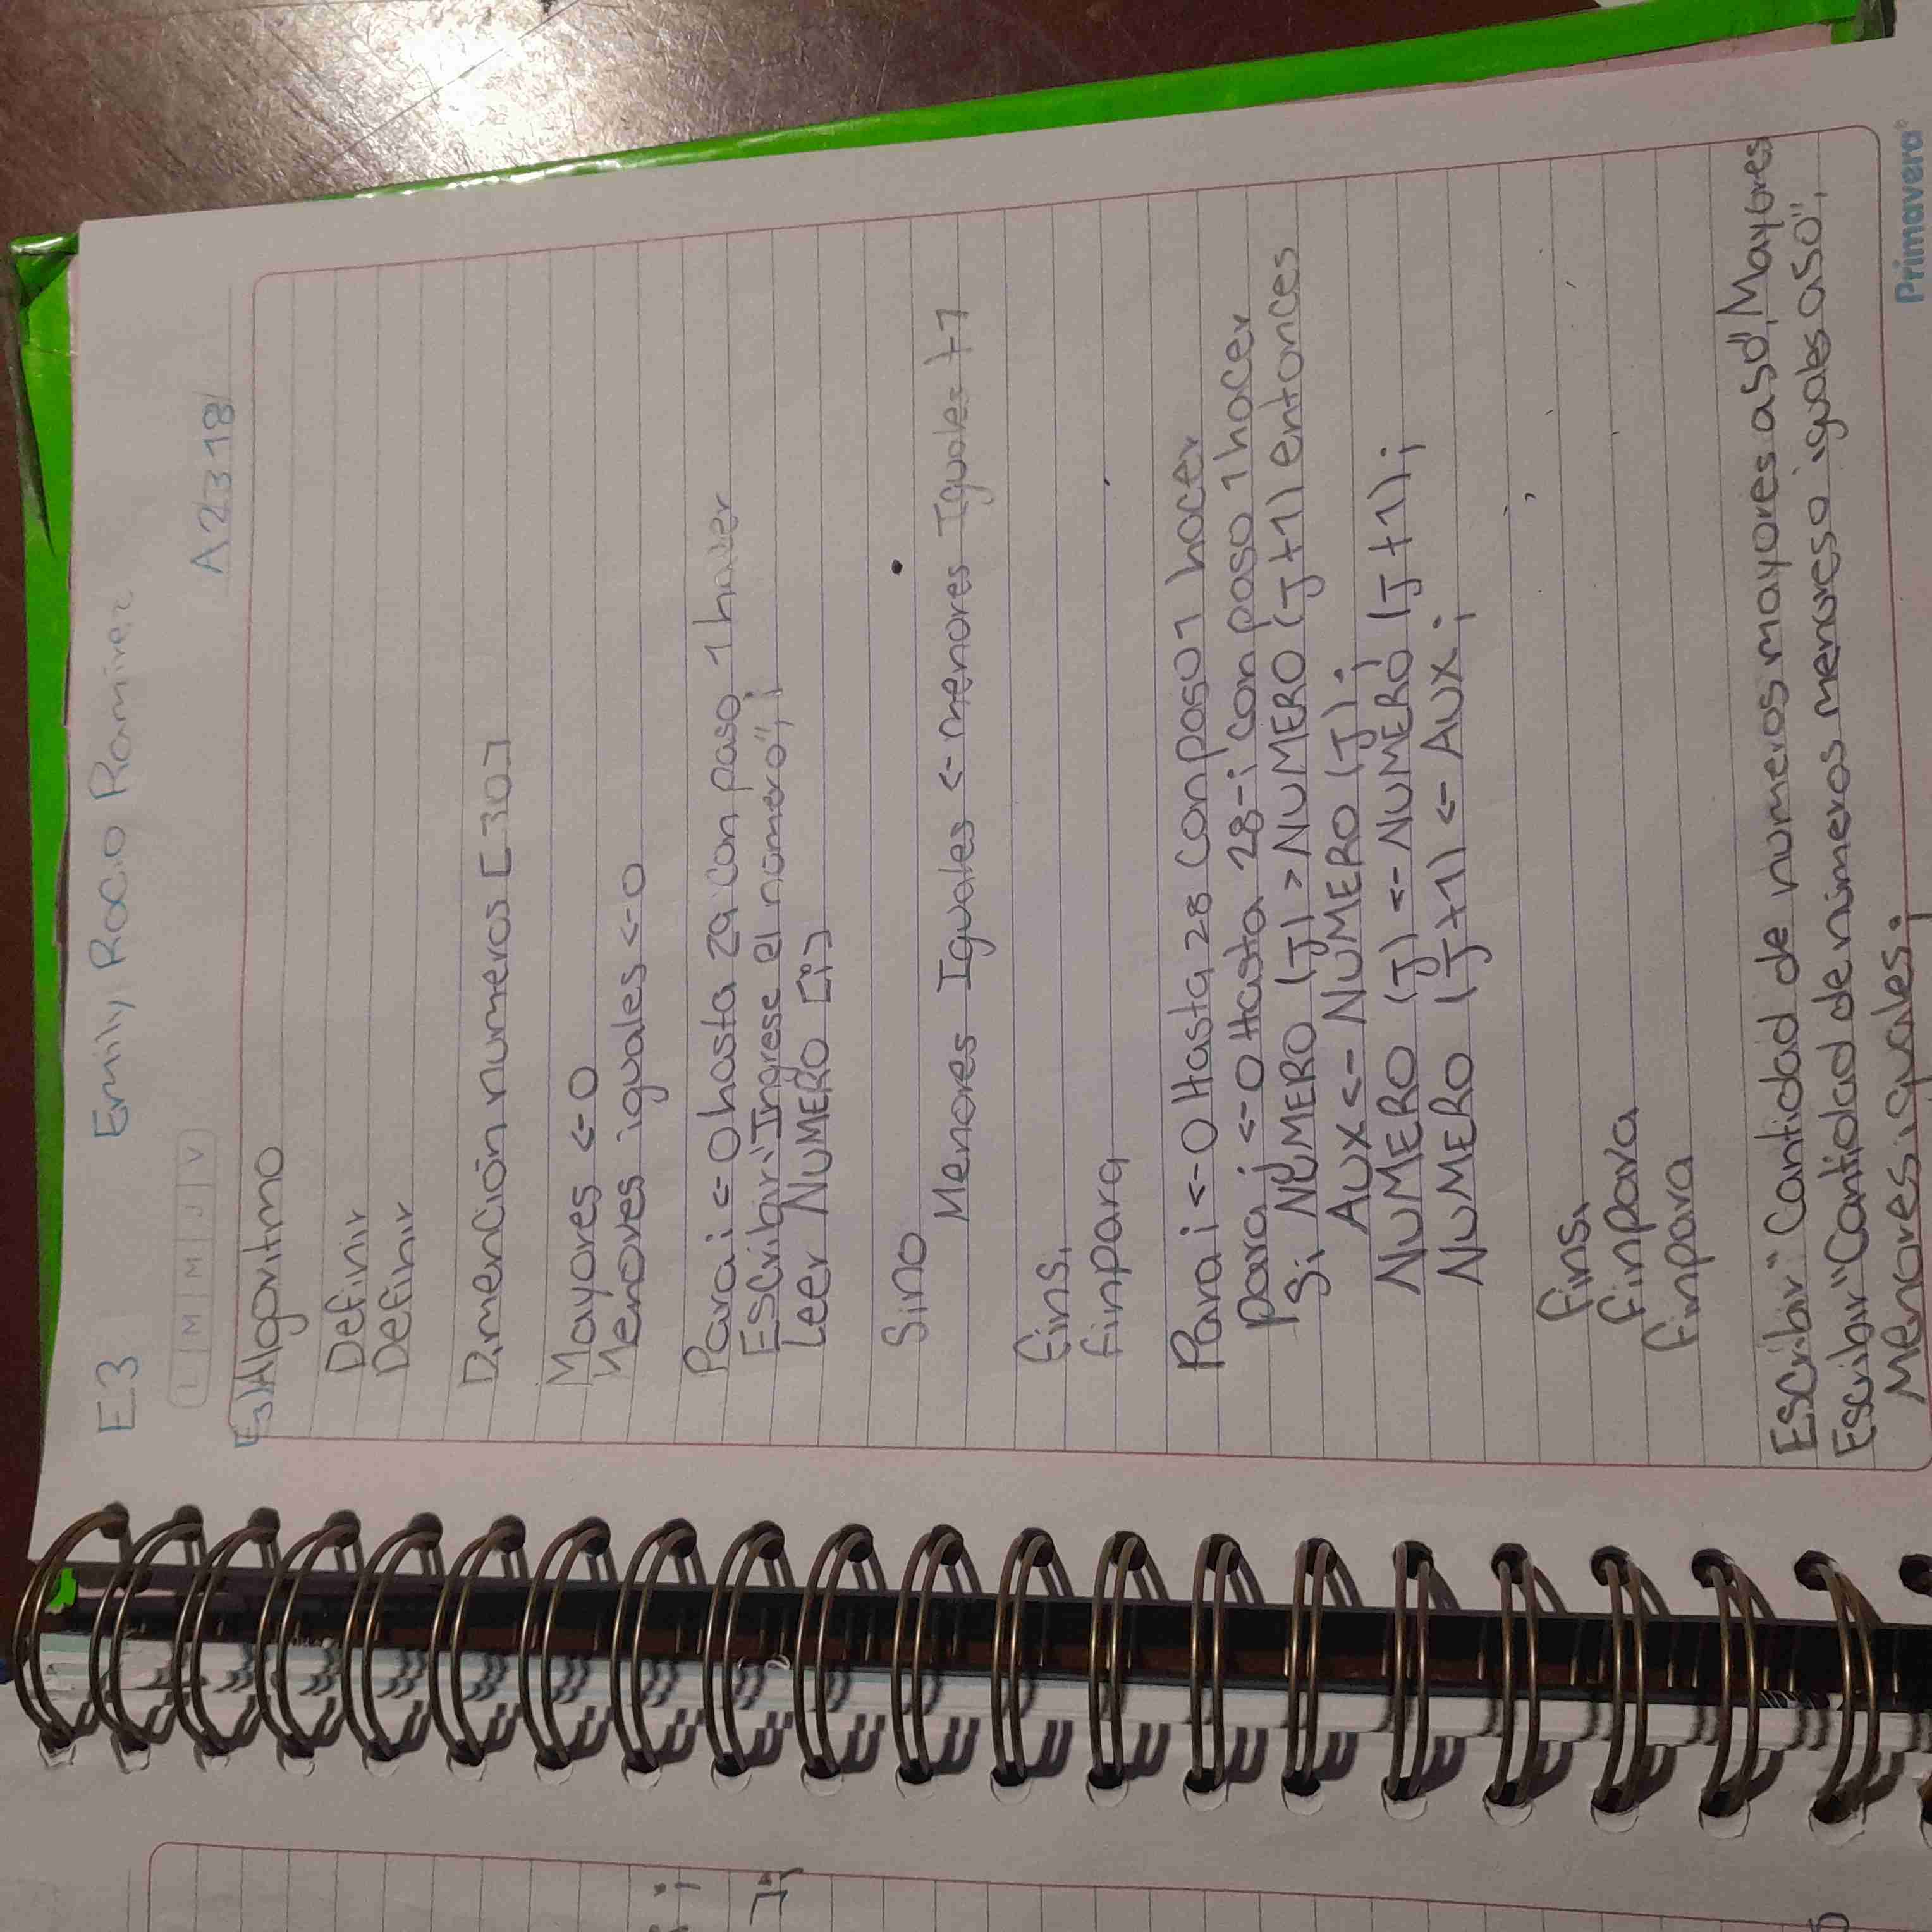 E3 Emily Rocio Ramirez
L M M J V
A2318
E3) Algoritmo
Definir
Definir
Dimención numeros [30]
Mayores <- 0
Menores iguales <- 0
Para i <- 0 hasta 29 con paso 1 hacer
Escribir "Ingrese el número", i
Leer NUMERO [i]
Sino
Menores Iguales <- menores Iguales +1
Finsi
Finpara
Para i <- 0 Hasta 28 con paso 1 hacer
para i <- 0 Hasta 28-i con paso 1 hacer
Si NUMERO (J) > NUMERO (J+1) entonces
AUX <- NUMERO (J);
NUMERO (J) <- NUMERO (J+1);
NUMERO (J+1) <- AUX;
Finsi
Finpara
Finpara
Escribir "Cantidad de numeros mayores a 50", Mayores
Escribir "Cantidad de nimeros menores o iguales a 50",
Menores iguales;
Primavera